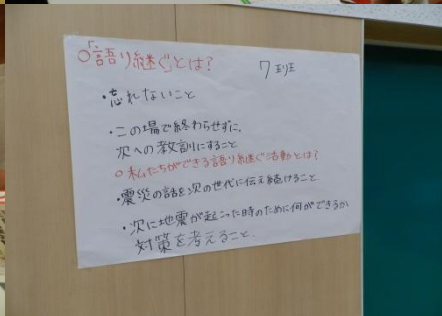 ○「語り継ぐ」とは？
7班
・忘れないこと
・この場で終わらせずに、
次への教訓にすること
○私たちができる語り継ぐ活動とは？
・震災の話を次の世代に伝え続けること
・次に地震が起こった時のために何ができるか
対策を考えること.